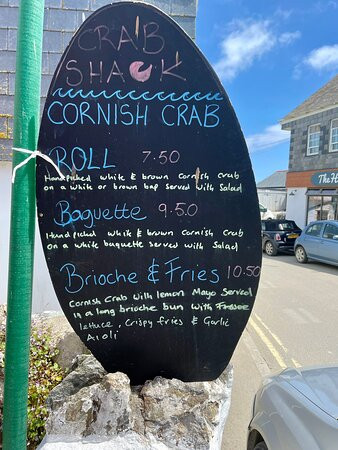 CRAB
SHACK
CORNISH CRAB
ROLL 7.50
Handpicked white & brown Cornish Crab
on a white or brown bap served with Salad
Baguette 9.50
Hand picked white & brown Cornish Crab
on a white baguette served with Salad
Brioche & Fries 10.50
Cornish Crab with lemon Mayo Served
in a long brioche bun with
lettuce, Crispy fries & Garlic
Aioli
The